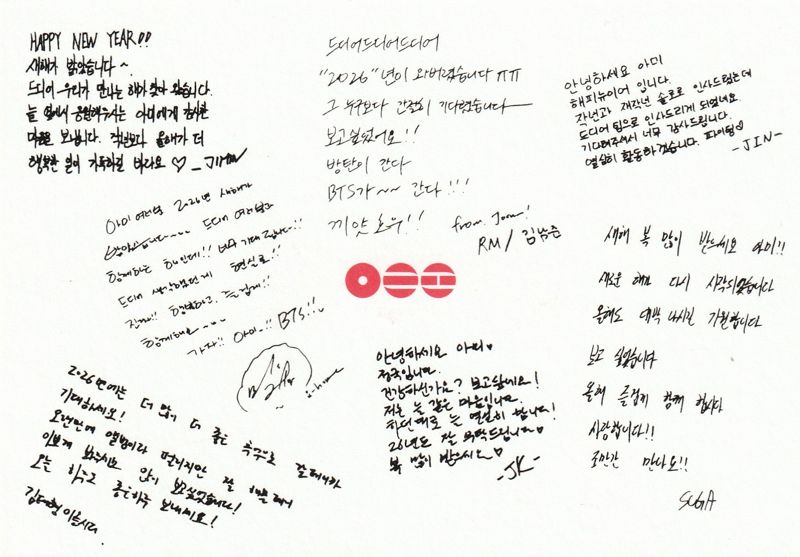 HAPPY NEW YEAR!!
새해가 밝았습니다~.
드디어 우리가 만나는 해가 찾아 왔습니다.
늘 옆에서 응원해주시는 아미에게 감사한
마음을 보냅니다. 작년보다 올해가 더
행복한 일이 가득하길 바라요 ♡ -JIMIN
드디어드디어드디어
"2026"년이 와버렸습니다 ㅠㅠ
그 누구보다 간절히 기다렸습니다
보고싶었어요!!
방탄이 간다
BTS가~~ 간다!!!
끼얏호우!!
from. Joon!
RM/김남준
안녕하세요 아미
해피뉴이어 입니다.
작년과 재작년 솔로로 인사드렸는데
드디어 팀으로 인사드리게 되었네요.
기다려주셔서 너무 감사드립니다.
열심히 활동하겠습니다. 파이팅♡
-JIN-
아미 여러분 2026년 새해가
밝았습니다~~ 드디어 여러분과
함께하는 해인데!! 너무 기대됩니다!!
드디어 생각했던게 현실로!!
진짜!! 행복하고, 즐겁게!!
함께해요~~
가자!! 아미!! BTS!!
j-hope
안녕하세요 아미♡
정국입니다.
건강하신가요? 보고싶네요!
저는 늘 같은 마음입니다.
하던대로 늘 열심히 합니다!
26년도 잘 부탁드립니다♡
복 많이 받으세요♡
-JK-
새해 복 많이 받으세요 아미!!
새로운 해가 다시 시작되었습니다
올해도 대박 나시길 기원합니다
보고 싶었습니다
올해 즐겁게 함께 합시다
사랑합니다!!
조만간 만나요!!
SUGA
2026년에는 더 많이 더 좋은 추억으로 갈테니까
기대하세요!
오랜만에 앨범이라 떨리지만 잘 해볼테니
이쁘게 봐주시고 많이 보고싶었습니다!
오늘 하루도 좋은하루 보내세요!
김태형 이름시다